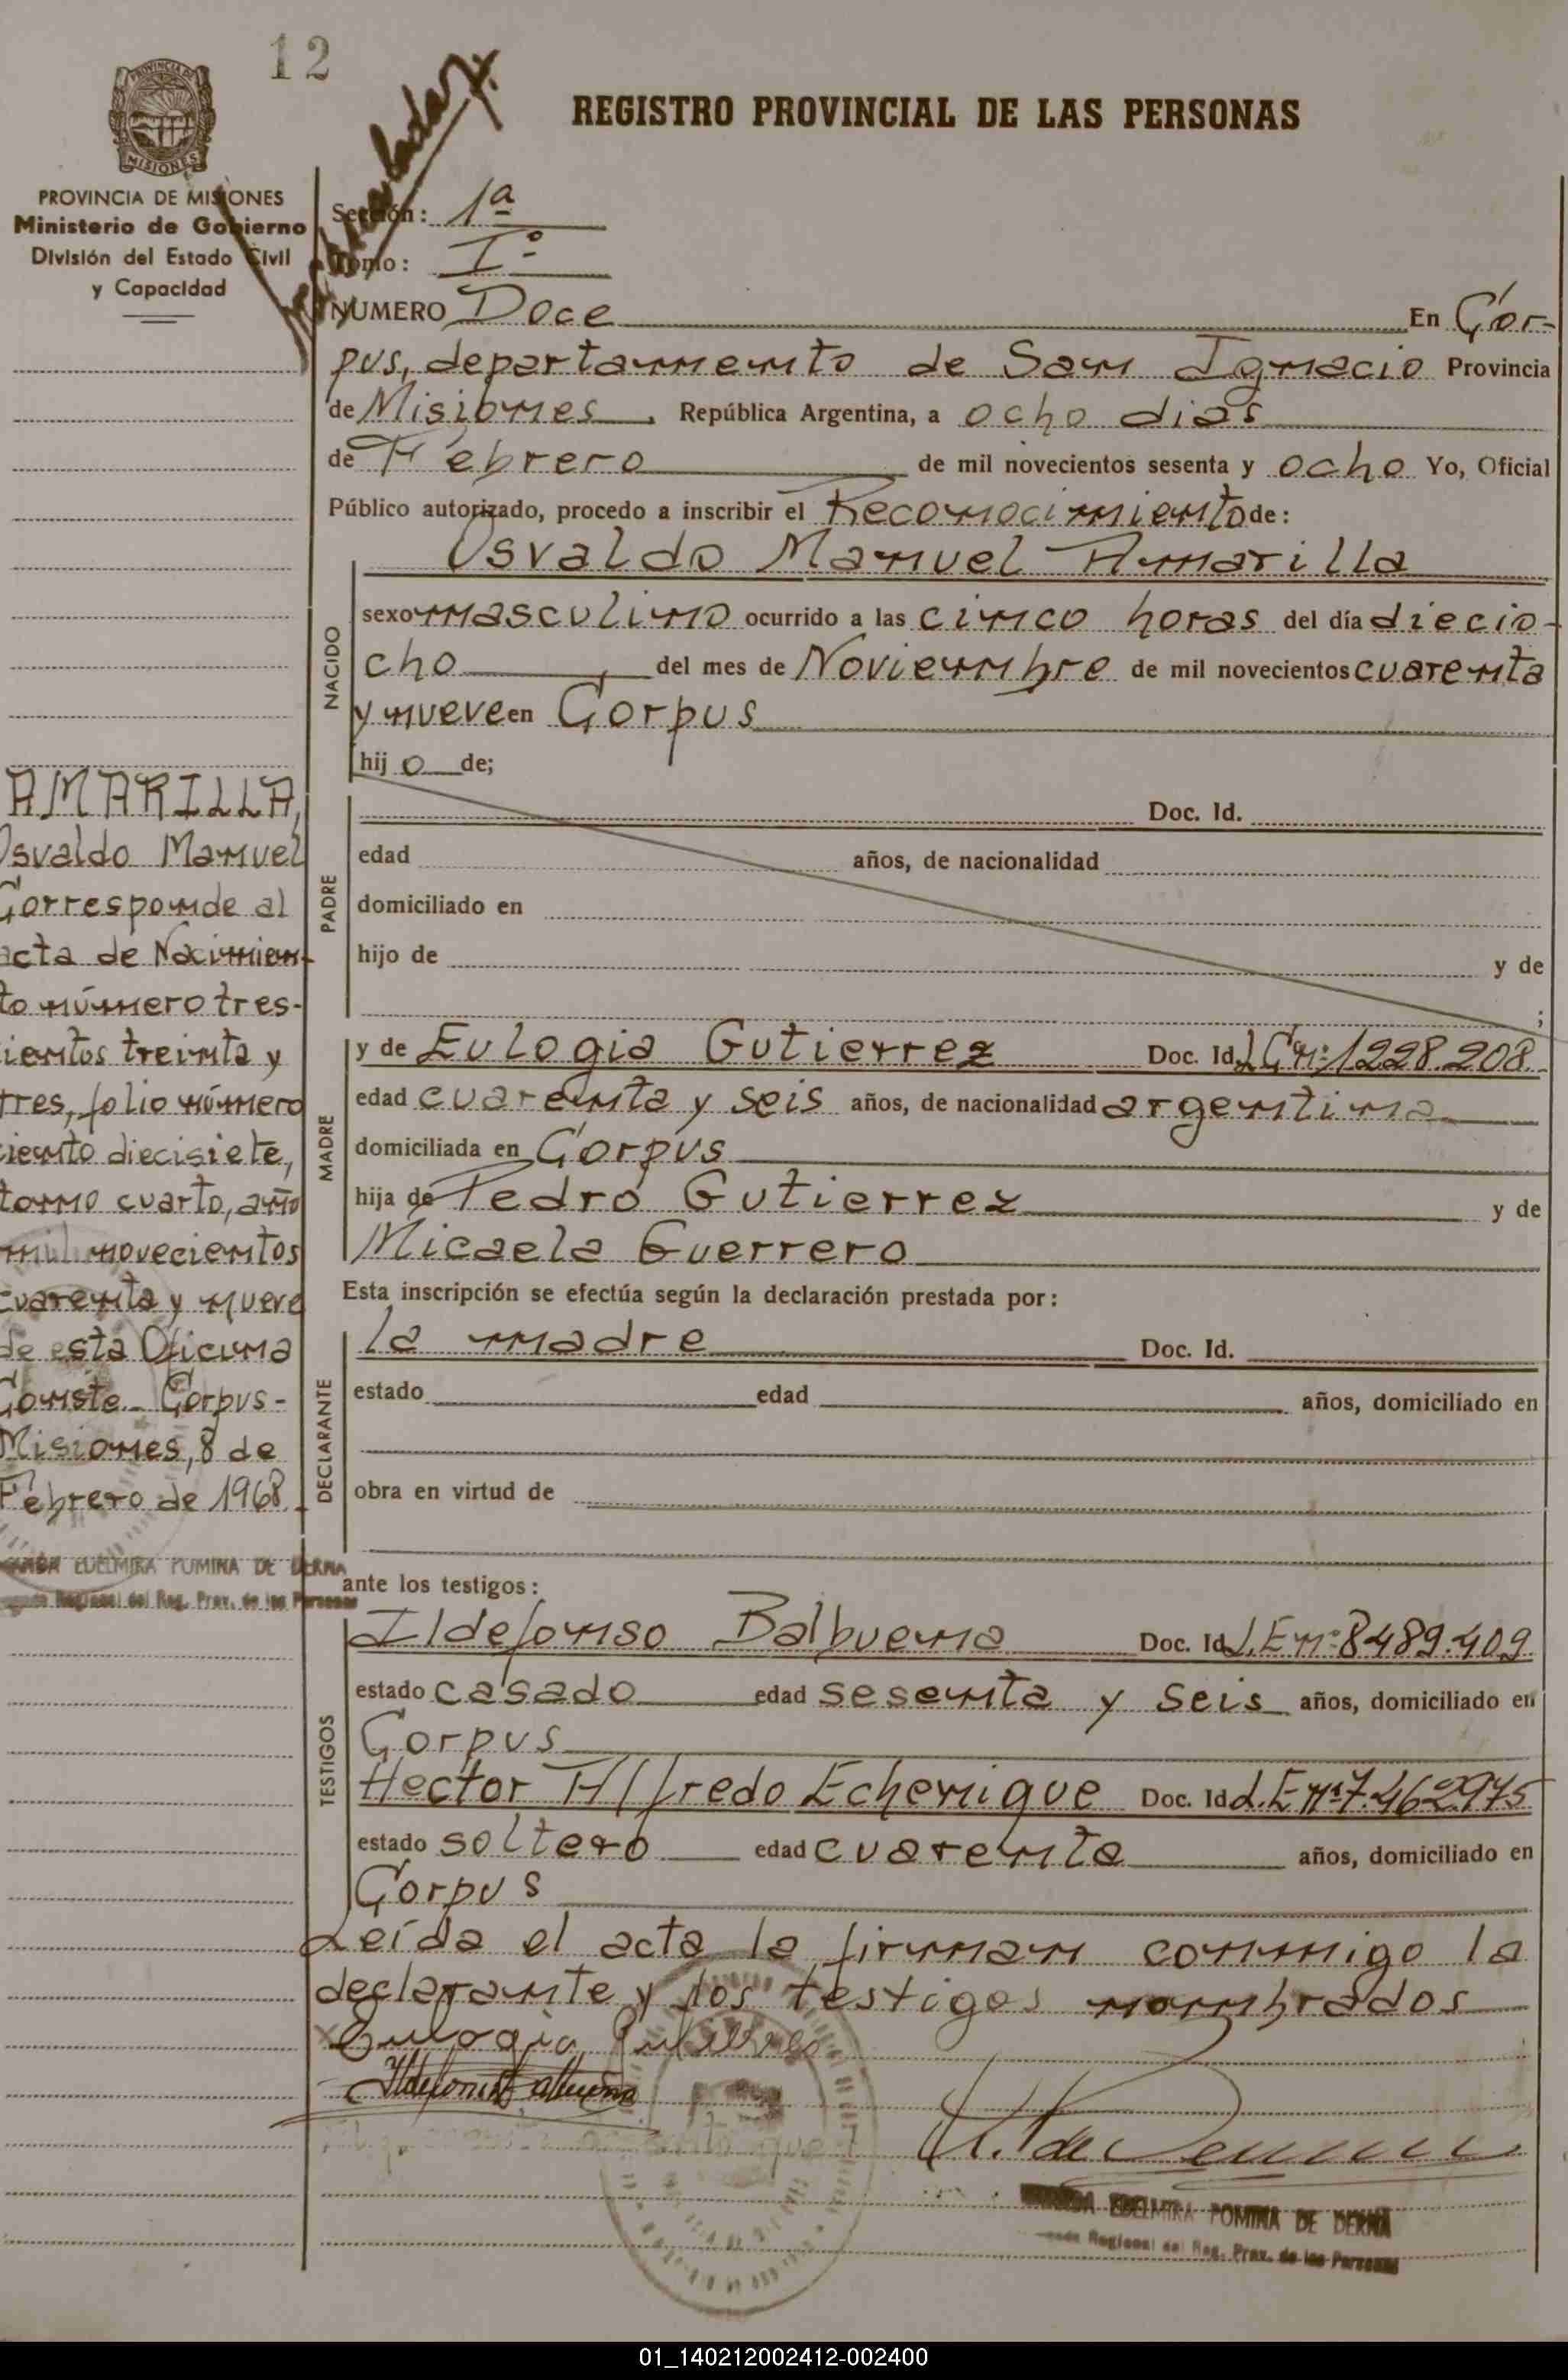 12
REGISTRO PROVINCIAL DE LAS PERSONAS
PROVINCIA DE
MISIONES
PROVINCIA DE MISIONES
Ministerio de Gobierno
División del Estado Civil
y Capacidad
Sección: 1ª
Tomo: Iº
NUMERO Doce En Cor-
pus, departamento de San Ignacio Provincia
de Misiones. República Argentina, a ocho dias
de Febrero de mil novecientos sesenta y ocho Yo, Oficial
Público autorizado, procedo a inscribir el Reconocimiento de:
Osvaldo Manuel Amarilla
NACIDO
sexo masculino ocurrido a las cinco horas del día diecio-
cho, del mes de Noviembre de mil novecientos cuarenta
y nueve en Corpus
hijo de;
PADRE
Doc. Id.
edad años, de nacionalidad
domiciliado en
hijo de y de
;
MADRE
y de Eulogia Gutierrez Doc. Id. L.C. nº: 1228.208
edad cuarenta y seis años, de nacionalidad argentina
domiciliada en Corpus
hija de Pedro Gutierrez y de
Micaela Guerrero
Esta inscripción se efectúa según la declaración prestada por:
DECLARANTE
la madre Doc. Id.
estado edad años, domiciliado en
obra en virtud de
ante los testigos:
TESTIGOS
Ildefonso Balbuena Doc. Id. L.E nº: 8489.409
estado casado edad sesenta y seis años, domiciliado en
Corpus
Hector Alfredo Echenique Doc. Id. L.E nº 7.462975
estado soltero edad cuarenta años, domiciliado en
Corpus
Leída el acta la firman conmigo la
declarante y los testigos nombrados
Eulogia Gutierrez
Ildefonso Balbuena
EDELMIRA POMINA DE DERNA
Regional del Reg. Prov. de las Personas
AMARILLA,
Osvaldo Manuel
Corresponde al
acta de Nacimien-
to número tres-
cientos treinta y
tres, folio número
ciento diecisiete,
tomo cuarto, año
mil novecientos
cuarenta y nueve
de esta Oficina
Conste. Corpus-
Misiones, 8 de
Febrero de 1968
EDELMIRA POMINA DE DERNA
Regional del Reg. Prov. de las Personas
01_140212002412-002400